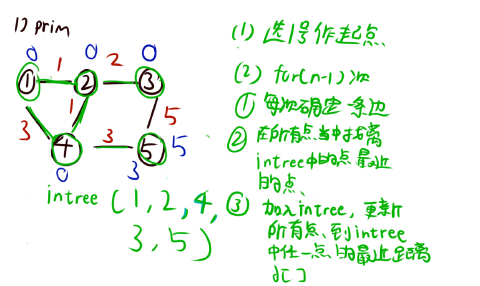 1) prim
0 0 0
1 2
① ② ③
3 1 5
4 3 5 5
0 3
intree (1,2,4,
3,5)
(1) 选1号作起点
(2) for(n-1)次
① 每次确定一条边
② 在所有点当中找离
intree中的点最近
的点、
③ 加入intree, 更新
所有点、到intree
中任一点、的最近距离
d[]